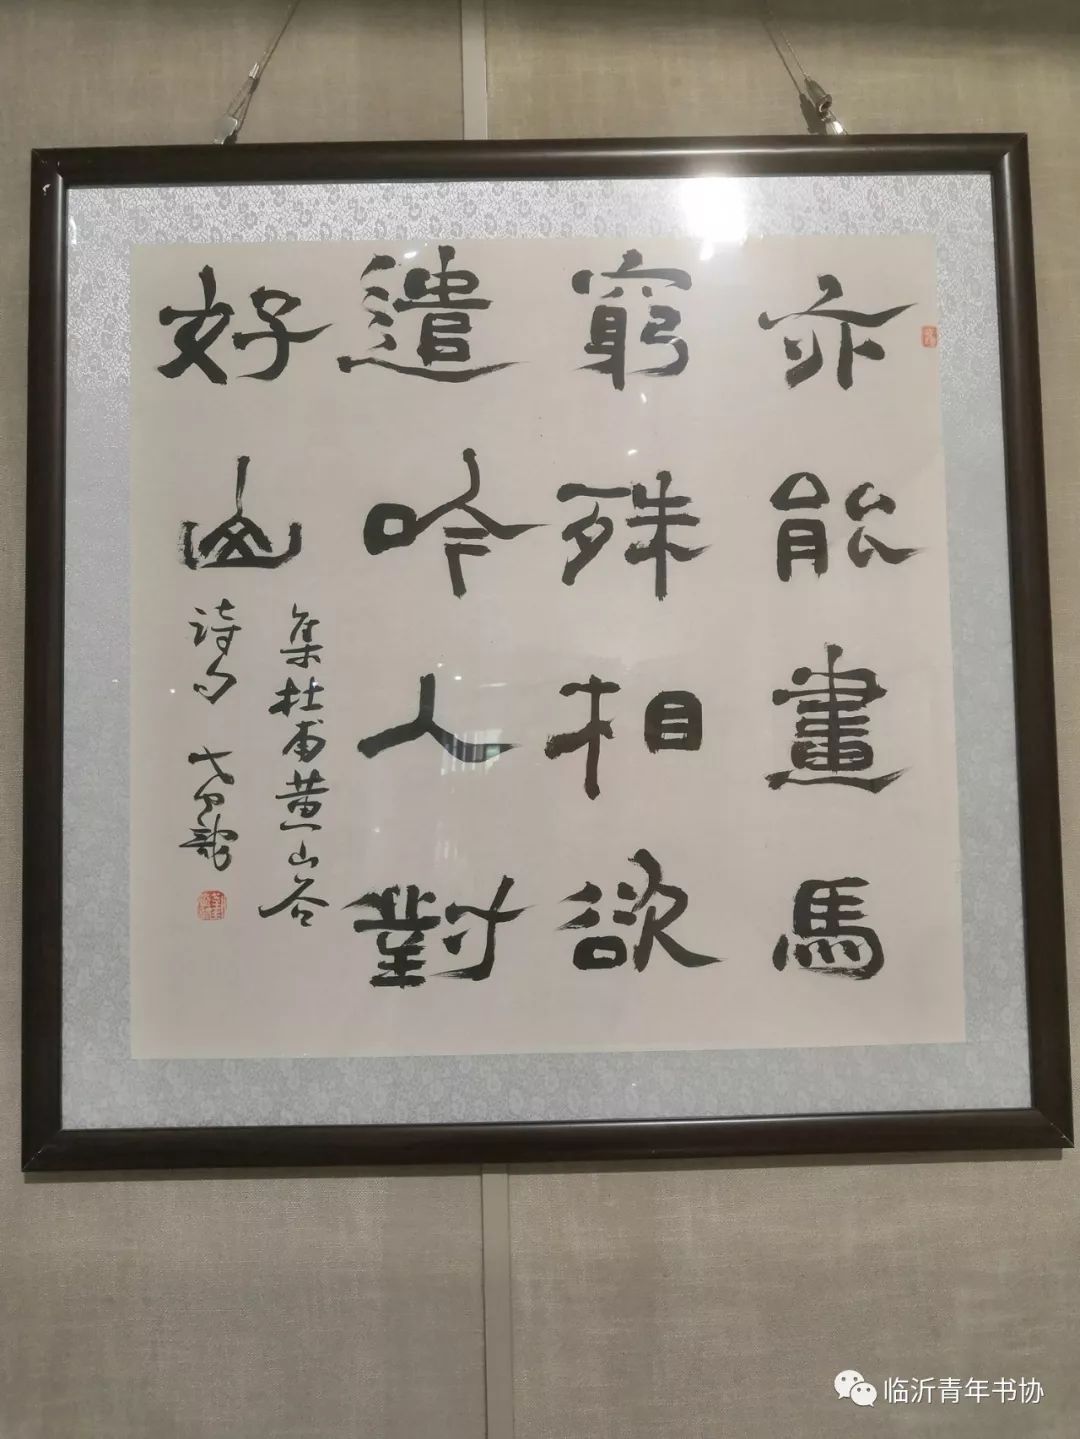 亦能畫馬
窮殊相欲
遣吟人對
好山
集杜甫黄山谷
詩句
临沂青年书协